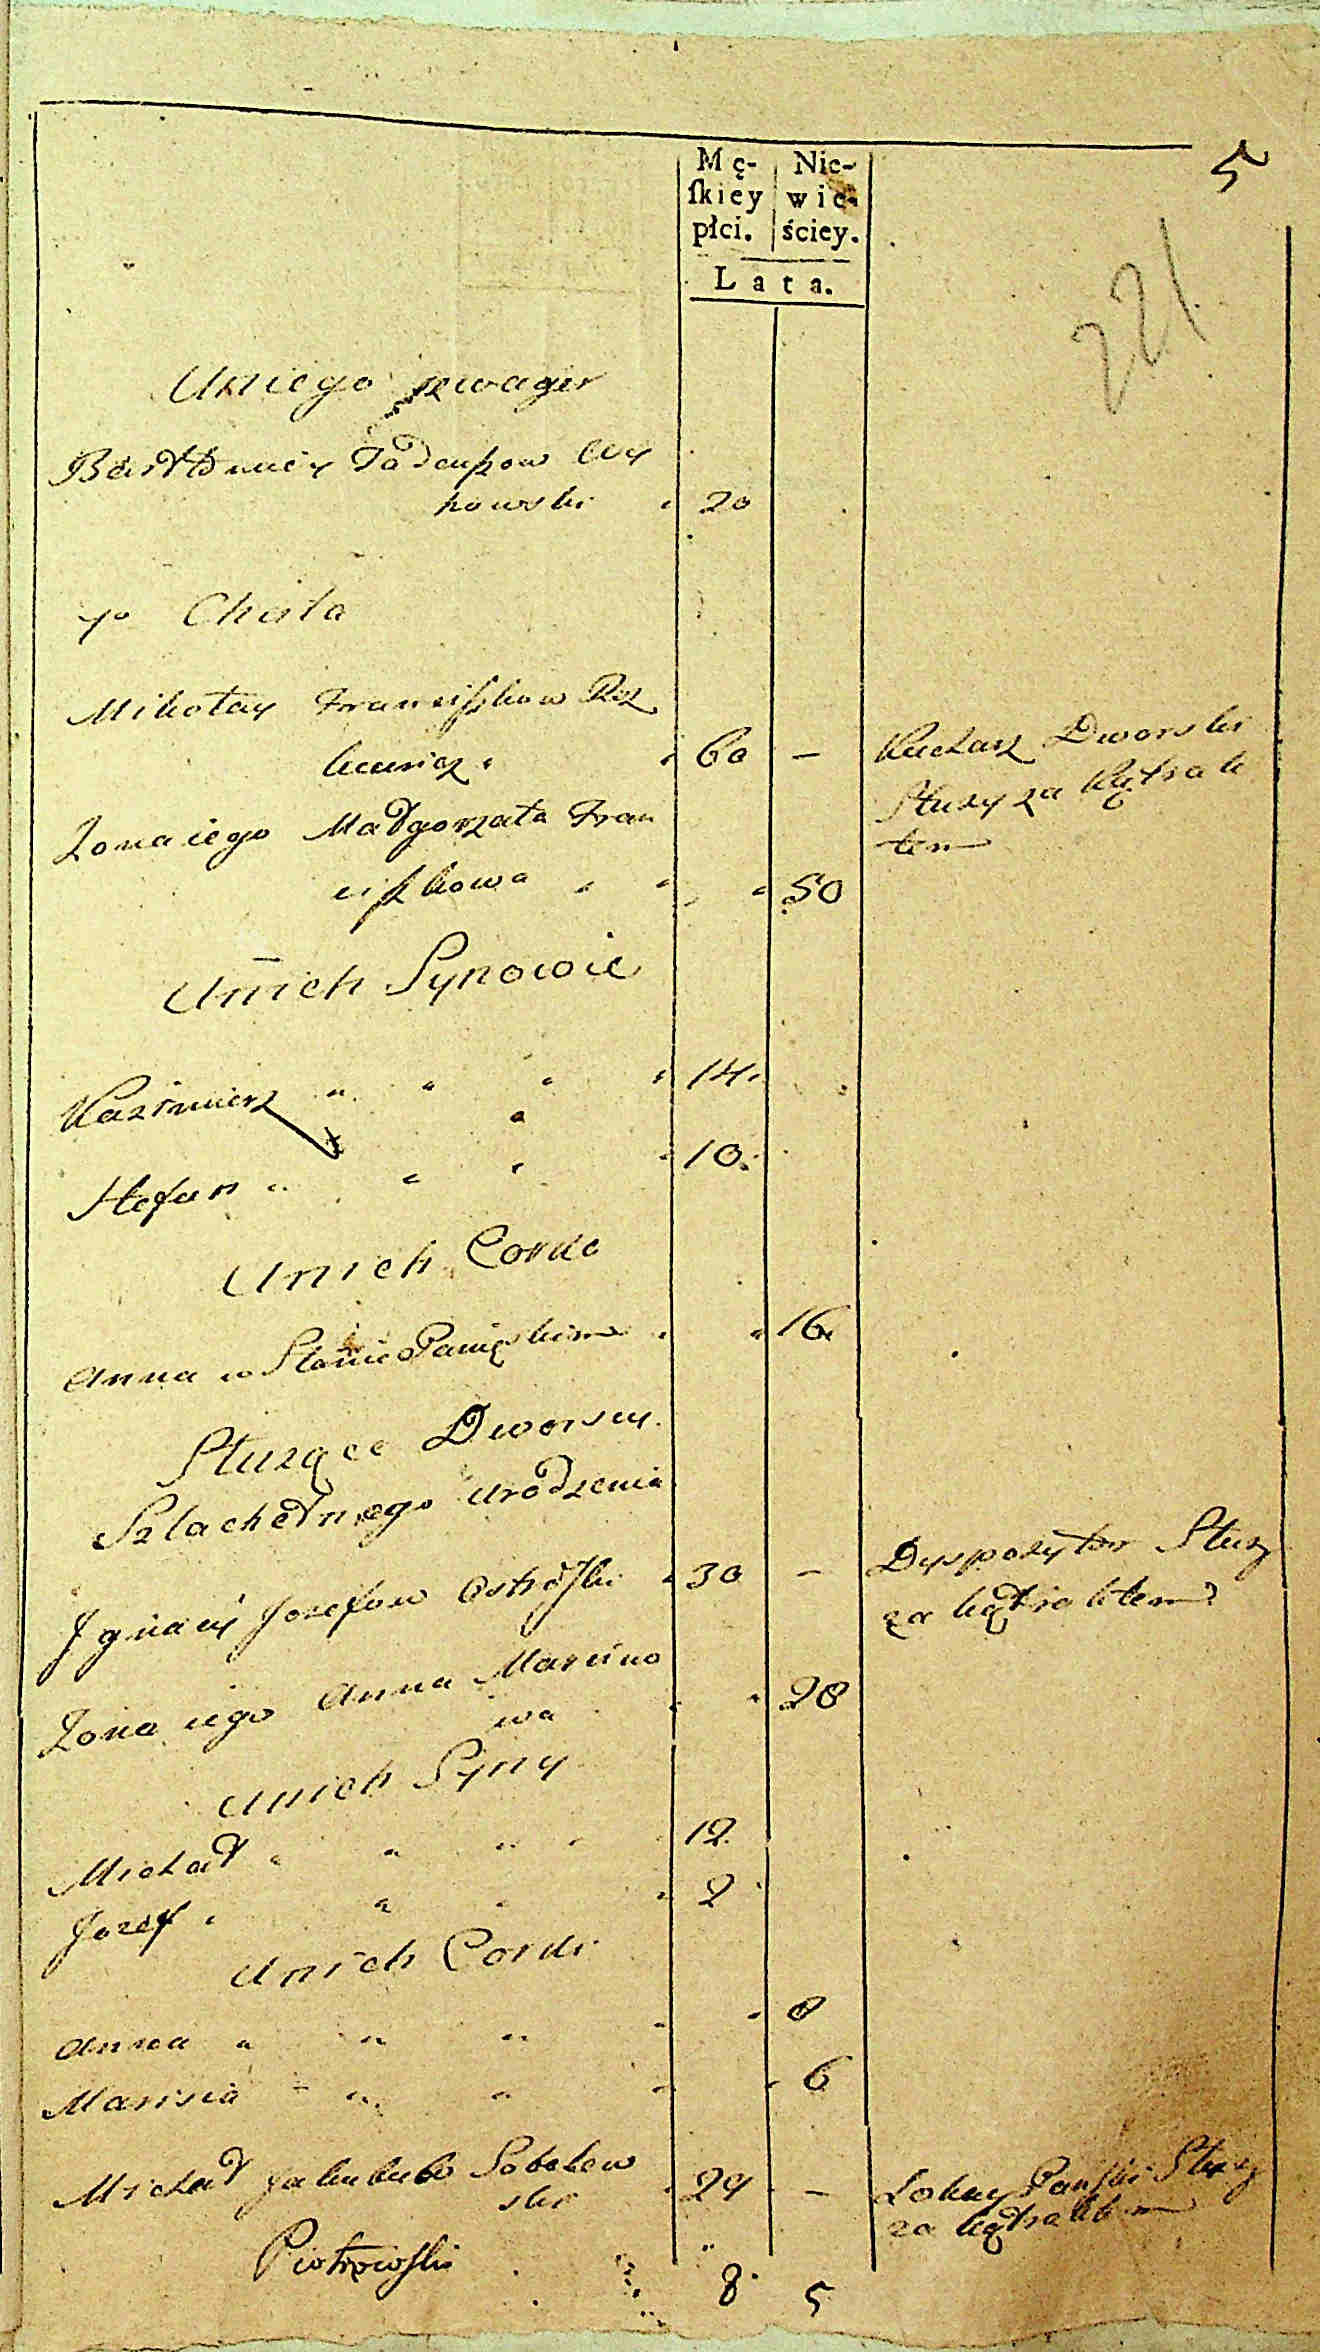 5
221
Mę- Nie-
ſkiey wie-
płci. ściey.
Lata.
Uniego szwagier
Bartłomiey Tadeuszow Wy
kowski 20
Chata
Mikołay Franciszkow
60 — Kucharz Dworski
Służy za kątrak
tem
Zona iego Małgorzata Fran
ciszkowa 50
Unich Synowie
Kazimierz 14
Stefan 10
Unich Corka
Anna w Stanie Panięskim 16
Służące Dworscy
Szlachetnego urodzenia
Jgnacy Jozefow Ostroski 30 — Dyspozytor Służy
za kątraktem
Zona iego Anna Marcino
wa 28
Unich Syny
Michał 12
Jozef 2
Unich Corki
Anna 8
Marisia 6
Michał Jakubow Sobolew
ski 24 — Lokay Pański Służy
za kątraktem
Piotrowski
8 5